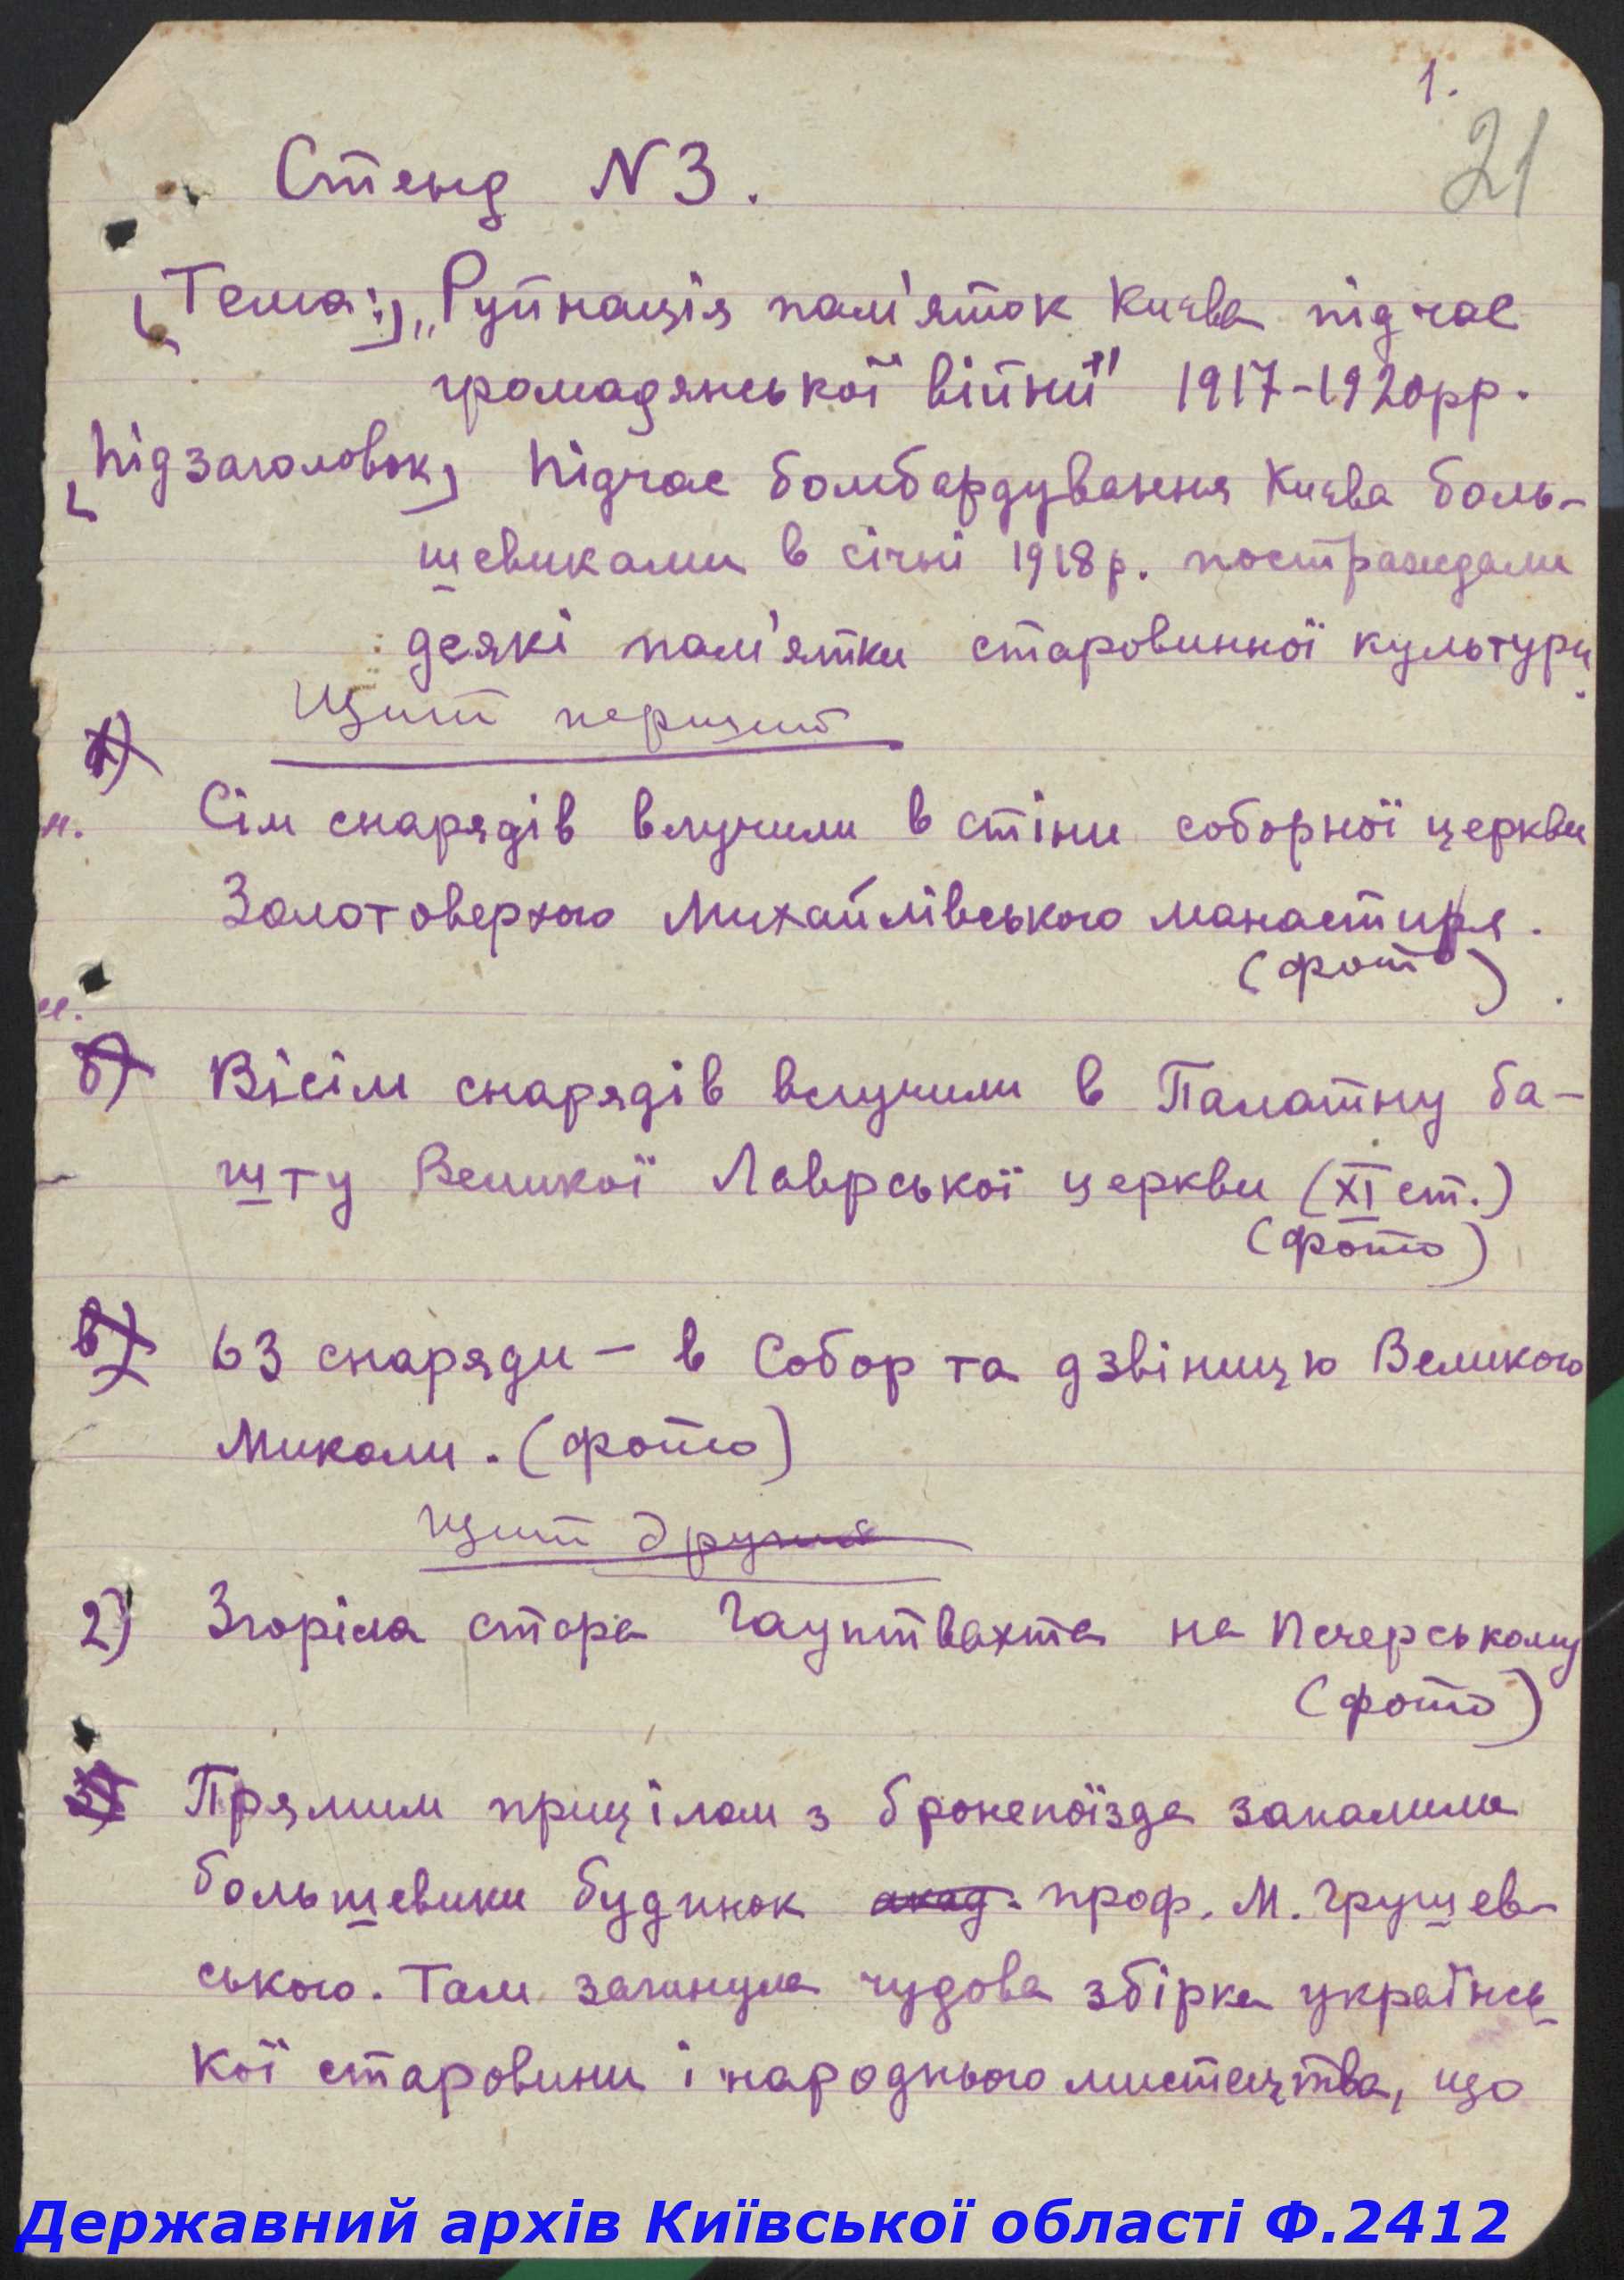 1.
21
Стенд N 3.
[Тема:] „Руйнація пам'яток Києва підчас
громадянської війни" 1917-1920рр.
[Підзаголовок] Підчас бомбардування Києва боль-
шевиками в січні 1918 р. постраждали
деякі пам'ятки старовинної культури.
Щит перший
а)
н. Сім снарядів влучили в стіни соборної церкви
Золотоверхого Михайлівського манастиря.
(фото)
н.
б) Вісім снарядів влучили в Палатну ба-
шту Великої Лаврської церкви (XI ст.)
(фото)
в) 63 снаряди – в Собор та дзвіницю Великого
Миколи. (фото)
Щит другий
2) Згоріла стара Гауптвахта на Печерському
(фото)
3) Прямим прицілом з бронепоїзда запалили
большевики будинок акад. проф. М. Грушев-
ського. Там загинула чудова збірка українсь-
кої старовини і народнього мистецтва, що
Державний архів Київської області Ф.2412